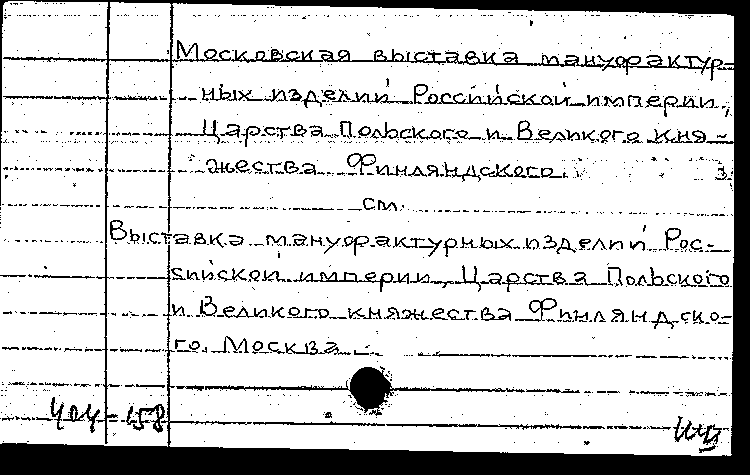 Московская выставка мануфактур-
ных изделий Российской империи,
Царства Польского и Великого кня-
жества Финляндского.
см.
Выставка мануфактурных изделий Рос-
сийской империи, Царства Польского
и Великого княжества Финляндско-
го. Москва.
404-158